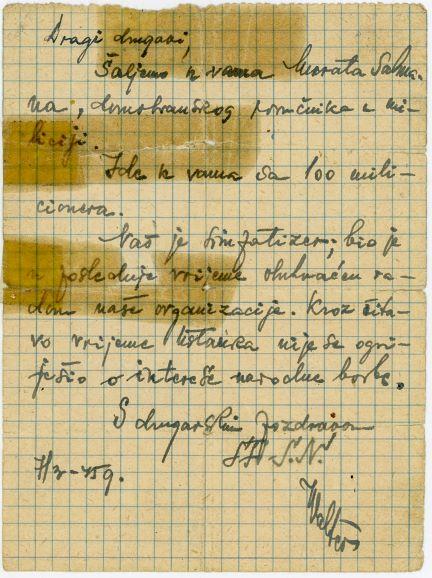 Dragi drugovi,
Šaljemo k vama Murata Salma-
na, domobranskog poručnika u mi-
liciji.
Ide k vama sa 100 mili-
cionera.
Naš je simpatizer; bio je
u posleduje vrijeme obuhvaćen ra-
dom naše organizacije. Kroz čita-
vo vrijeme Ustanka nije se ogri-
ješio o interese narodne borbe.
S drugarskim pozdravom
SF-S.N.
Valter